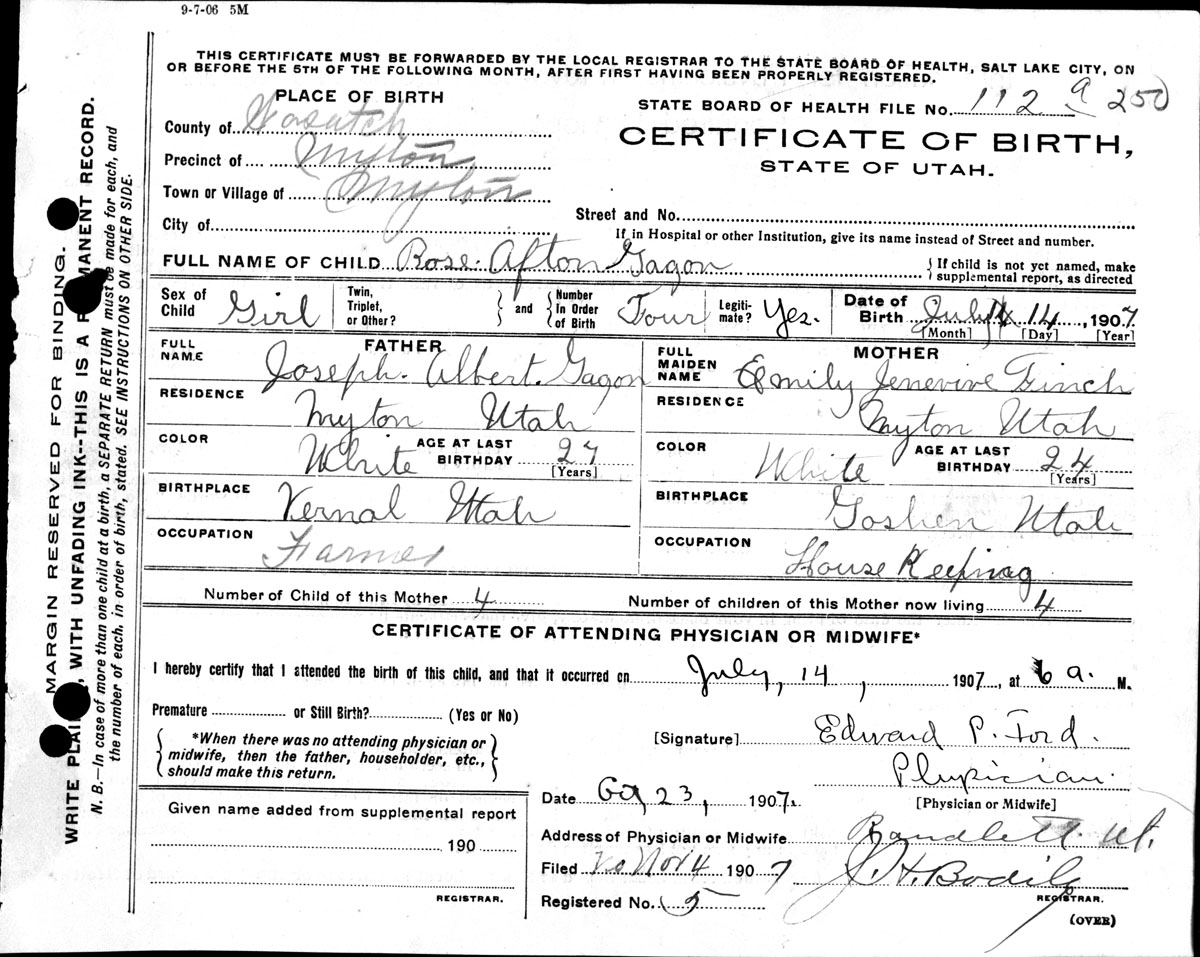 9-7-06 5M
THIS CERTIFICATE MUST BE FORWARDED BY THE LOCAL REGISTRAR TO THE STATE BOARD OF HEALTH, SALT LAKE CITY, ON
OR BEFORE THE 5TH OF THE FOLLOWING MONTH, AFTER FIRST HAVING BEEN PROPERLY REGISTERED.
PLACE OF BIRTH
STATE BOARD OF HEALTH FILE No. 112 a 250
County of Wasatch
CERTIFICATE OF BIRTH,
Precinct of Myton
STATE OF UTAH.
Town or Village of Myton
Street and No.
City of
If in Hospital or other Institution, give its name instead of Street and number.
FULL NAME OF CHILD Rose Afton Gagon { If child is not yet named, make supplemental report, as directed
Sex of Child Girl Twin, Triplet, or Other? } and { Number In Order of Birth Four Legiti-mate? Yes. Date of Birth July 14, 1907
[Month] [Day] [Year]
FATHER
MOTHER
FULL NAME Joseph. Albert. Gagon
FULL MAIDEN NAME Emily Jenevive Finch
RESIDENCE Myton Utah
RESIDENCE Myton Utah
COLOR White AGE AT LAST BIRTHDAY 27 [Years]
COLOR White AGE AT LAST BIRTHDAY 24 [Years]
BIRTHPLACE Vernal Utah
BIRTHPLACE Goshen Utah
OCCUPATION Farmer
OCCUPATION House Keepinag
Number of Child of this Mother 4 Number of children of this Mother now living 4
CERTIFICATE OF ATTENDING PHYSICIAN OR MIDWIFE*
I hereby certify that I attended the birth of this child, and that it occurred on July, 14, 1907, at 6 a. M.
Premature or Still Birth? (Yes or No)
*When there was no attending physician or
midwife, then the father, householder, etc.,
should make this return.
[Signature] Edward P. Ford.
Physician
[Physician or Midwife]
Date 23, 1907.
Given name added from supplemental report
190
REGISTRAR.
Address of Physician or Midwife Randlett. Ut.
Filed Nov 4 1907 J. H. Bodily
REGISTRAR.
Registered No. 5
(OVER)
MARGIN RESERVED FOR BINDING.
WRITE WITH UNFADING INK--THIS IS A RECORD.
N. B.—In case of more than one child at a birth, a SEPARATE RETURN must be made for each, and
the number of each, in order of birth, stated. SEE INSTRUCTIONS ON OTHER SIDE.